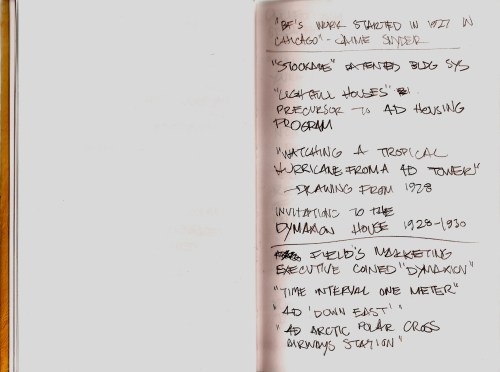 "BF'S WORK STARTED IN 1927 IN
CHICAGO" - JAIME SNYDER
"STOCKADE" PATENTED BLDG SYS
"LIGHTFUL HOUSES"
PRECURSOR TO 4D HOUSING
PROGRAM
"WATCHING A TROPICAL
HURRICANE FROM A 4D TOWER"
—DRAWING FROM 1928
INVITATIONS TO THE
DYMAXION HOUSE 1928-1930
FIELD'S MARKETING
EXECUTIVE COINED "DYMAXION"
"TIME INTERVAL ONE METER"
"4D 'DOWN EAST'"
"4D ARCTIC POLAR CROSS
AIRWAYS STATION"